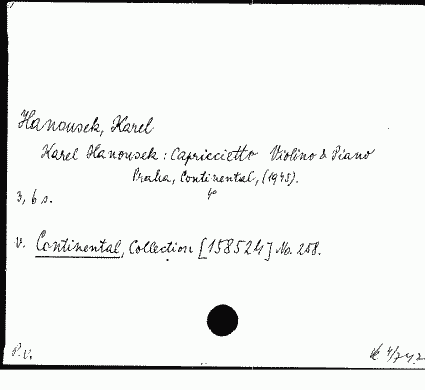 Hanousek, Karel
Karel Hanousek: Capriccietto Violino & Piano
Praha, Continental, (1945).
3, 6 s. 4°
v. Continental, Collection [158524] No. 258.
P. V.